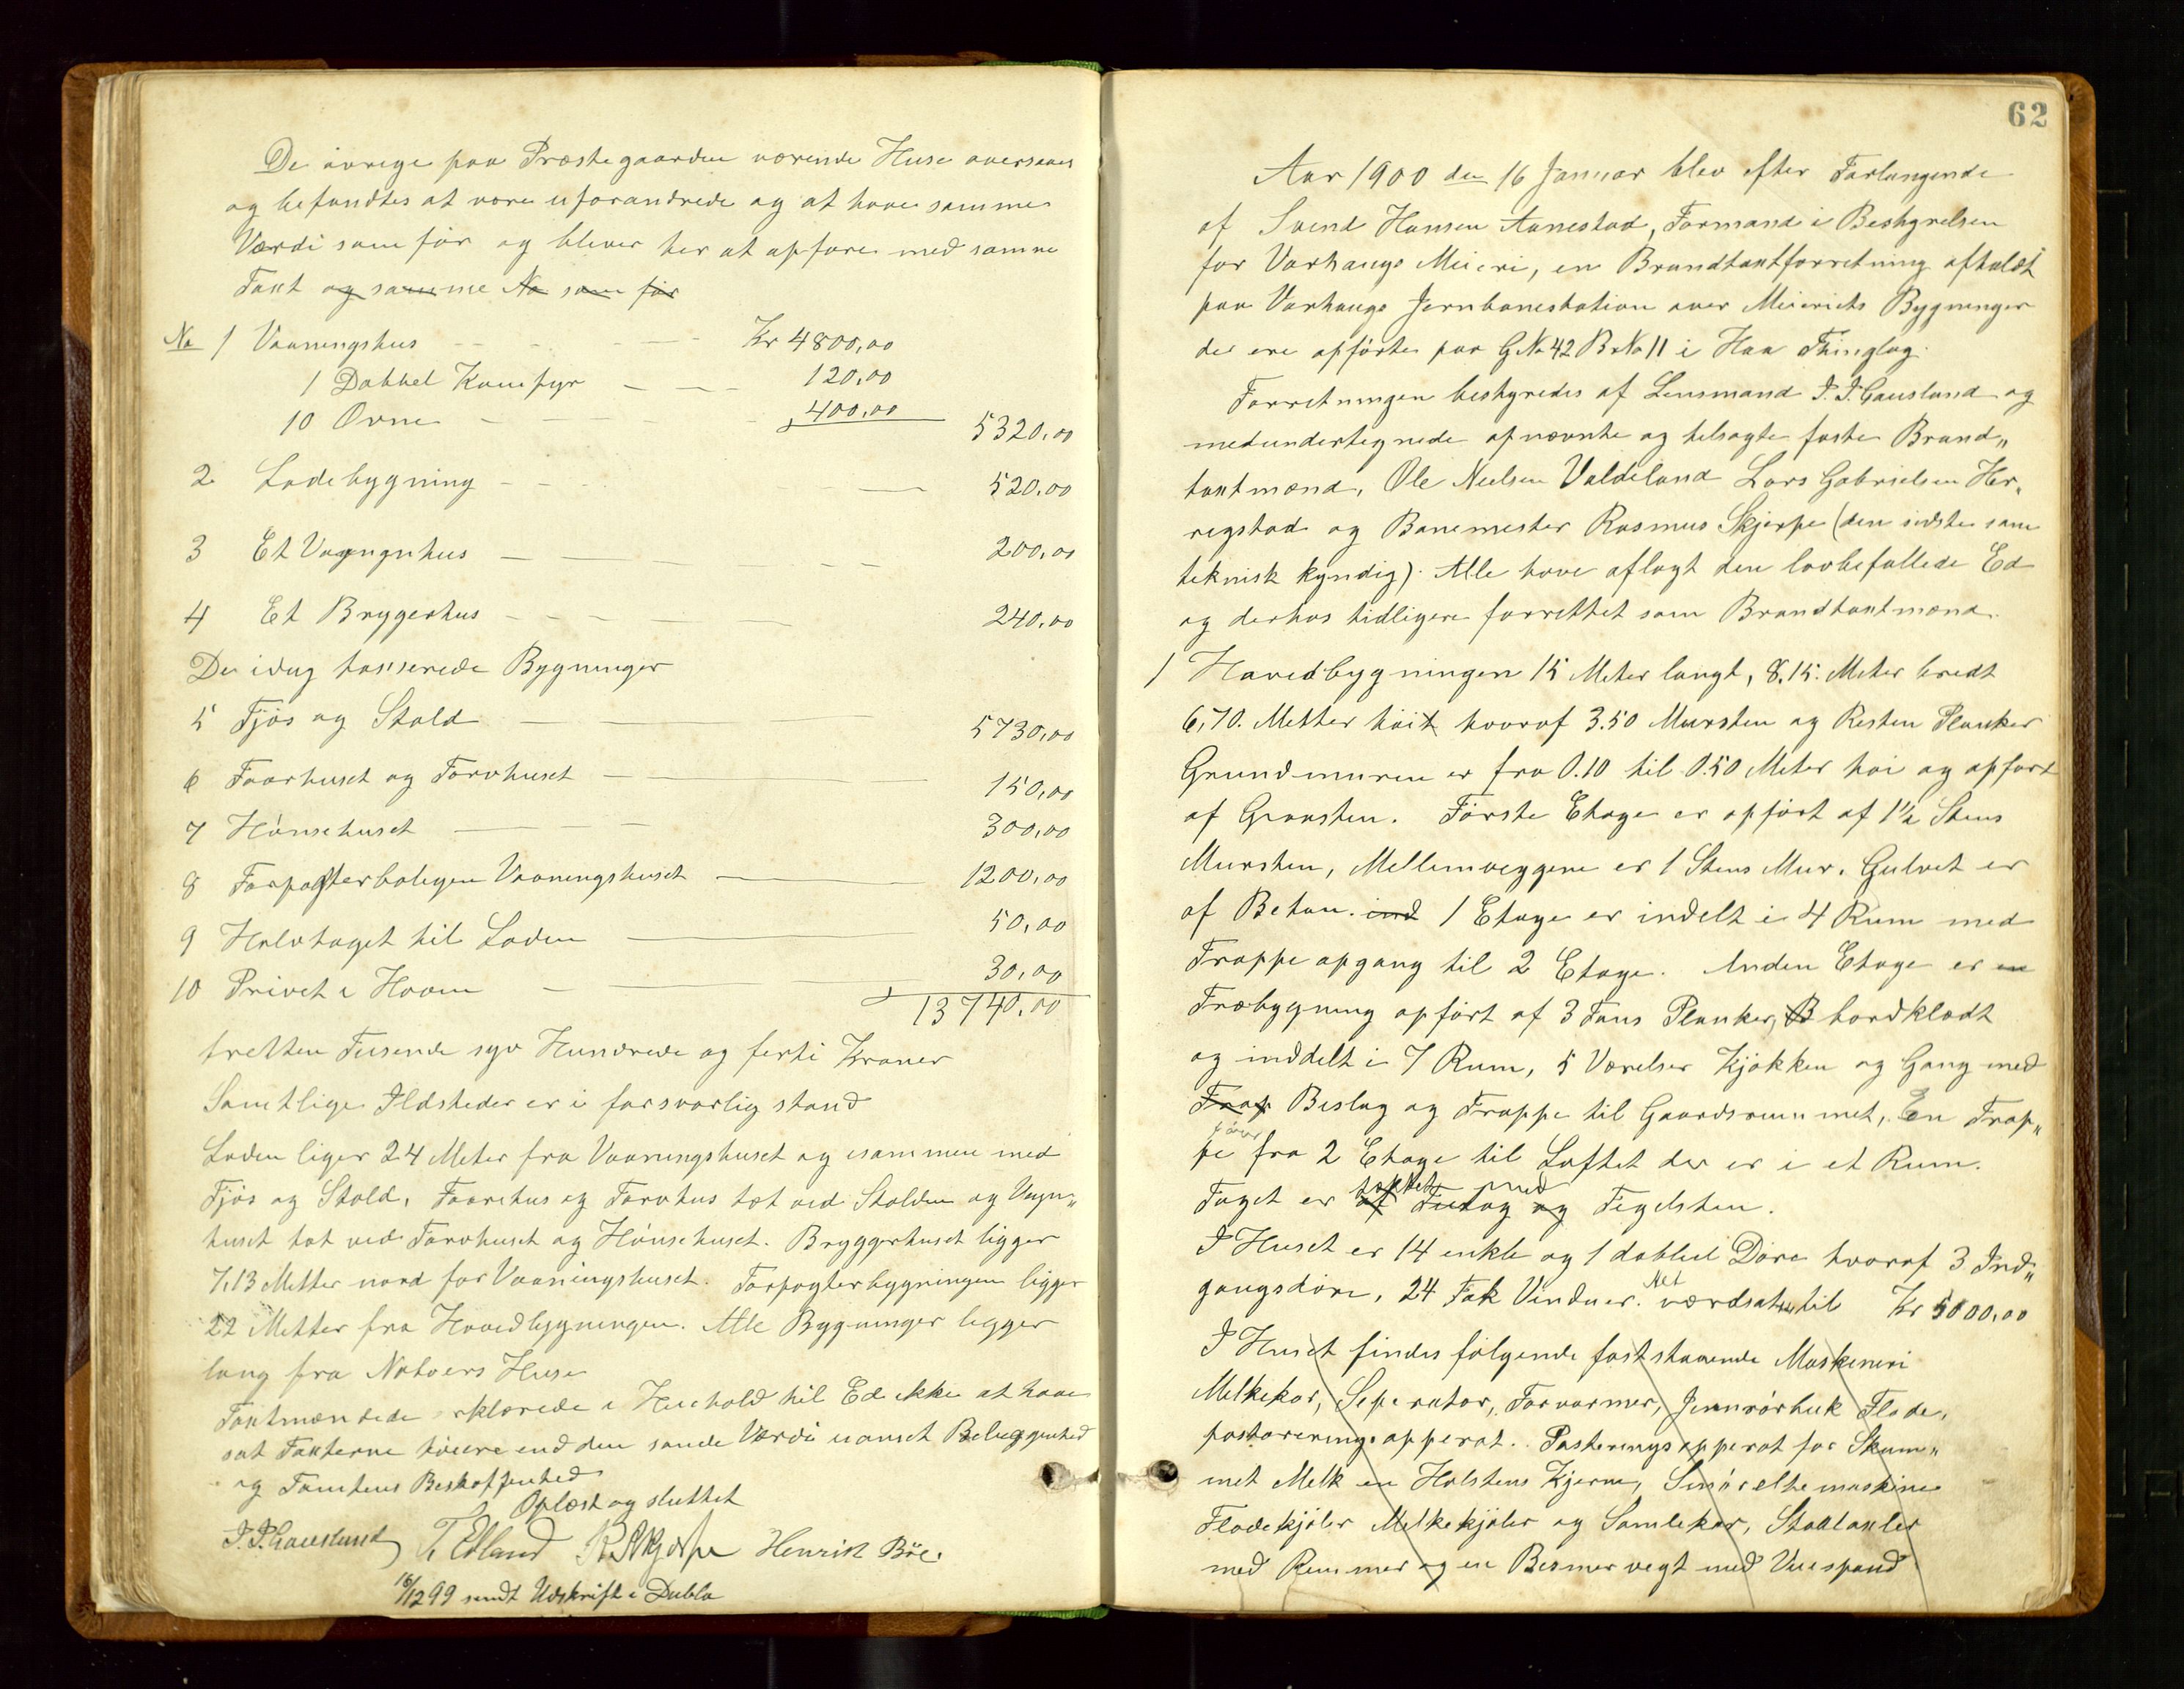 De øvrige paa Præstegaarden værende Huse oversaaes
og befandtes at være uforandrede og at have samme
Værdi som før og bliver her at opføre med samme
Taxt og samme No som før
No 1 Vaaningshus Kr 4800,00
1 Dobbel Komfyr 120,00
10 Ovne 400,00 5320,00
2 Ladebygning 520,00
3 Et Vogngnhus 200,00
4 Et Bryggerhus 240,00
De idag taxserede Bygninger
5 Fjøs og Stald 5730,00
6 Faarhuset og Torvhuset 150,00
7 Hønsehuset 300,00
8 Forpagterboligen Vaaningshuset 1200,00
9 Halvtaget til Laden 50,00
10 Privet i Haven 30,00
13740,00
tretten Tusende syv Hundrede og førti Kroner
Samtlige Ildsteder er i forsvarlig stand
Laden liger 24 Meter fra Vaaningshuset og isammen med
Fjøs og Stald, Faarehus og Torvhus tæt ved Stalden og Vogn„
huset tæt ved Torvhuset og Hønsehuset. Bryggerhuset ligger
7,13 Metter nord for Vaaningshuset. Forpagterbygningen ligger
22 Metter fra Hovedbygningen. Alle Bygninger ligger
lang fra Naboers Huse
Taxtmændede erklærede i Henhold til Ed ikke at have
sat Taxterne høiere end den sande Værdi uanset Beliggenhed
og Tomtens Beskaffenhed
Oplæst og sluttet
J. J. Gauslund T. Edland R Skjerpe Henrik Böe.
16/12 99 sendt Udskrift i Dublo
62
Aar 1900 den 16 Januar blev efter Forlangende
af Svend Hansen Aanestad, Formand i Bestyrelsen
for Varhaugs Meieri, en Brandtaxtforretning afholdt
paa Varhaugs Jernbanestation over Meieriets Bygninger
der ere opførte paa GNo 42 BNo 11 i Haa Thinglag.
Forretningen bestyredes af Lensmand J. J. Gauslund og
medundertegnede opnævnte og tilsagte faste Brand„
taxtmænd, Ole Nielsen Valdeland Lars Gabrielsen Her„
regstad og Banemester Rasmus Skjerpe (den sidste som
teknisk kyndig). Alle have aflagt den lovbefallede Ed
og derhos tidligere forrettet som Brandtaxtmænd.
1 Hovedbygningen 15 Meter langt, 8.15. Meter bredt
6,70. Metter høit hvoraf 3.50 Mursten og Resten Planker
Grundmuren er fra 0.10 til 0.50 Meter høi og opført
af Graasten. Første Etage er opført af 1½ Stens
Mursten, Mellemveggene er 1 Stens Mur. Gulvet er
af Beton. ind 1 Etage er indelt i 4 Rum med
Trappe opgang til 2 Etage. Anden Etage er en
Træbygning opført af 3 Toms Planker, B bordklædt
og inddelt i 7 Rum, 5 Værelser Kjøkken og Gang med
Trap Beslag og Trappe til Gaardsrummet, En Trap„
pe fører fra 2 Etage til Loftet der er i et Rum.
Taget er af tækket Tretag og med Tegelsten.
I Huset er 14 enkle og 1 dobbel Døre hvoraf 3 Ind„
gangsdøre, 24 Fak Vinduer. Alt værdsattes til Kr 5000,00
I Huset findes følgende faststaaende Maskineri
Melkekar, Seperator, Forvarmer, Jernrørbuk Fløde,
pastorerings apperat. Pasterings apperat for Skum„
met Melk en Holstens Kjerne, Smørelte maskine
Flødekjøler Melkekjøler og Samlekar, Staalaxler
med Remmer og en Bismervegt med Veiespand